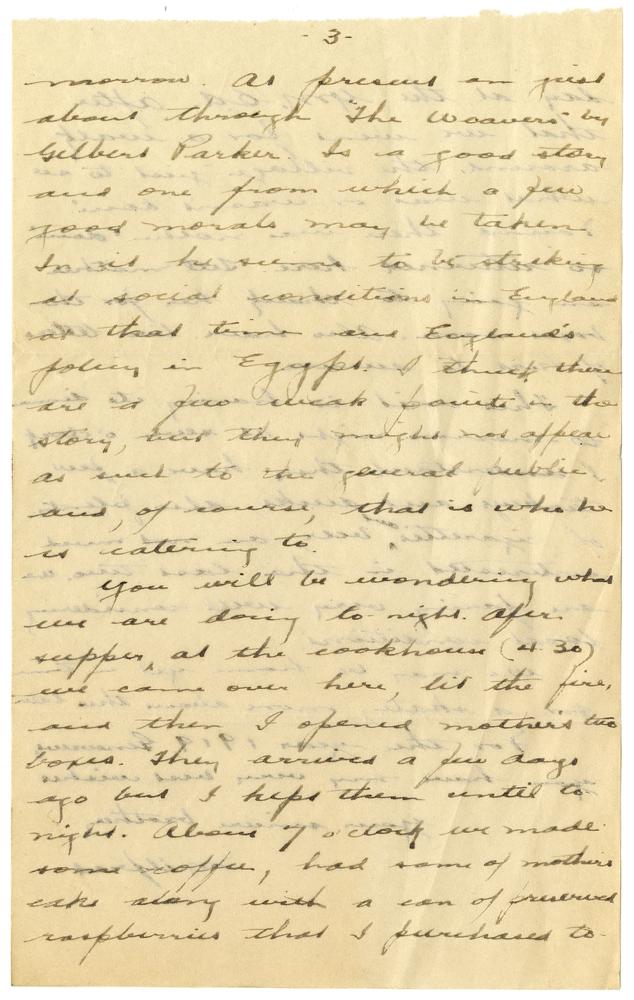 - 3 -
morrow. At present am just
about through "The Weavers" by
Gilbert Parker. Is a good story
and one from which a few
good morals may be taken.
In it he seems to be striking
at social conditions in England
at that time and England's
policy in Egypt. I think there
are a few weak points in the
story, but they might not appear
as such to the general public,
and, of course, that is who he
is catering to.
You will be wondering what
we are doing to-night. After
supper, at the cookhouse (4.30)
we came over here, lit the fire,
and then I opened mother's two
boxes. They arrived a few days
ago but I kept them until to
night. About 7 o'clock we made
some coffee, had some of mothers
cake along with a can of preserved
raspberries that I purchased to-